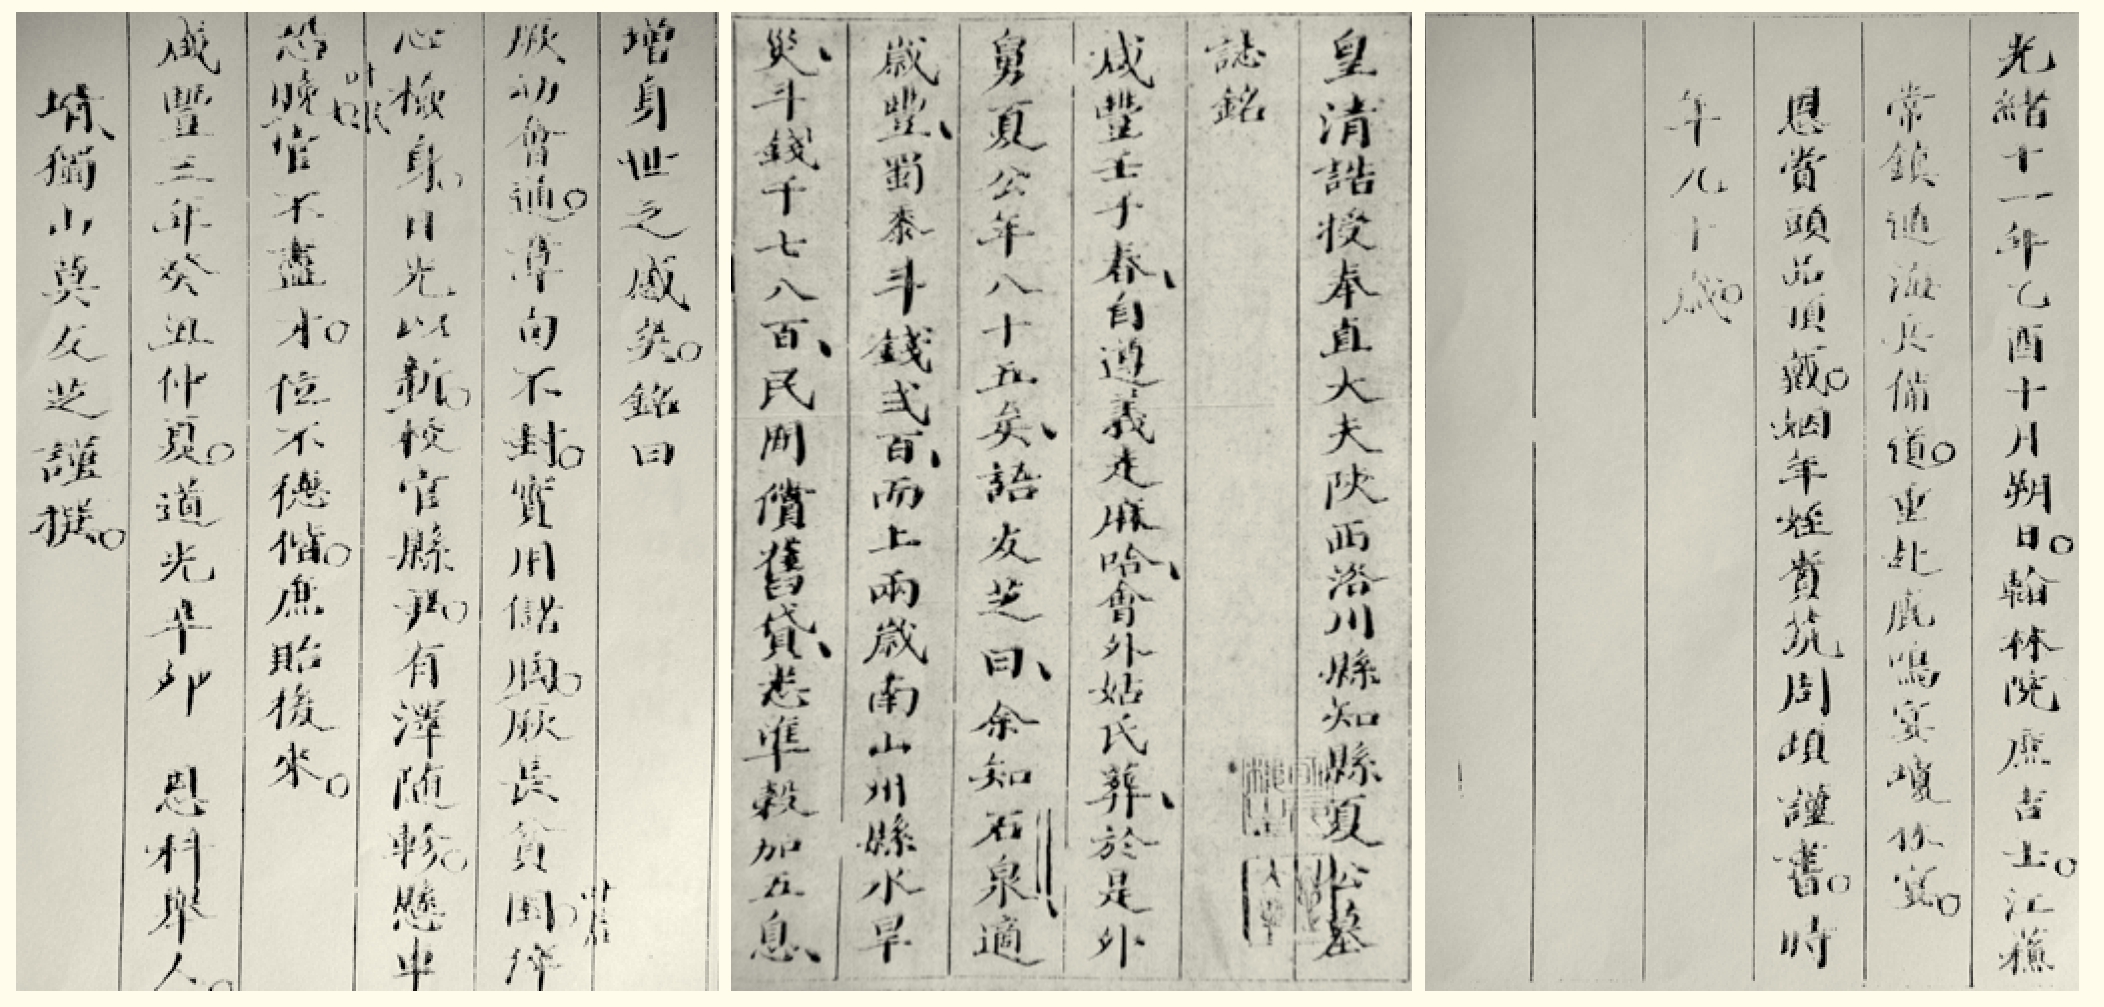 光緒十一年乙酉十月朔日。翰林院庶吉士。江蘇
常鎮通海兵備道。重赴鹿鳴宴瓊林宴。
恩賞頭品頂戴。姻年姪貴筑周頊謹書。時
年九十歲。
皇清誥授奉直大夫陝西洛川縣知縣夏公墓
誌銘
咸豐壬子春、自遵義走麻哈、會外姑氏葬、於是外
舅夏公年八十五矣、語友芝曰、余知石泉、適
歲豐、蜀黍斗錢弍百、而上兩歲南山州縣水旱
災、斗錢千七八百、民間償舊貸、悉準穀加五息、
增身世之感矣。銘曰
厥初會通。尊向不封。實用儲胸。厥長貧困。
心檢身。日光以新。校官縣尹。有澤隨軫。懸車
恐晚官不盡才。位不德偕。庶貽後來。
咸豐三年癸丑仲夏。道光辛卯 恩科舉人。
壻獨山莫友芝謹撰。